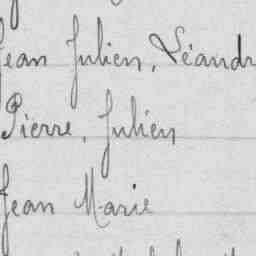 Jean Julien, Léandr
Pierre, Julien
Jean Marie